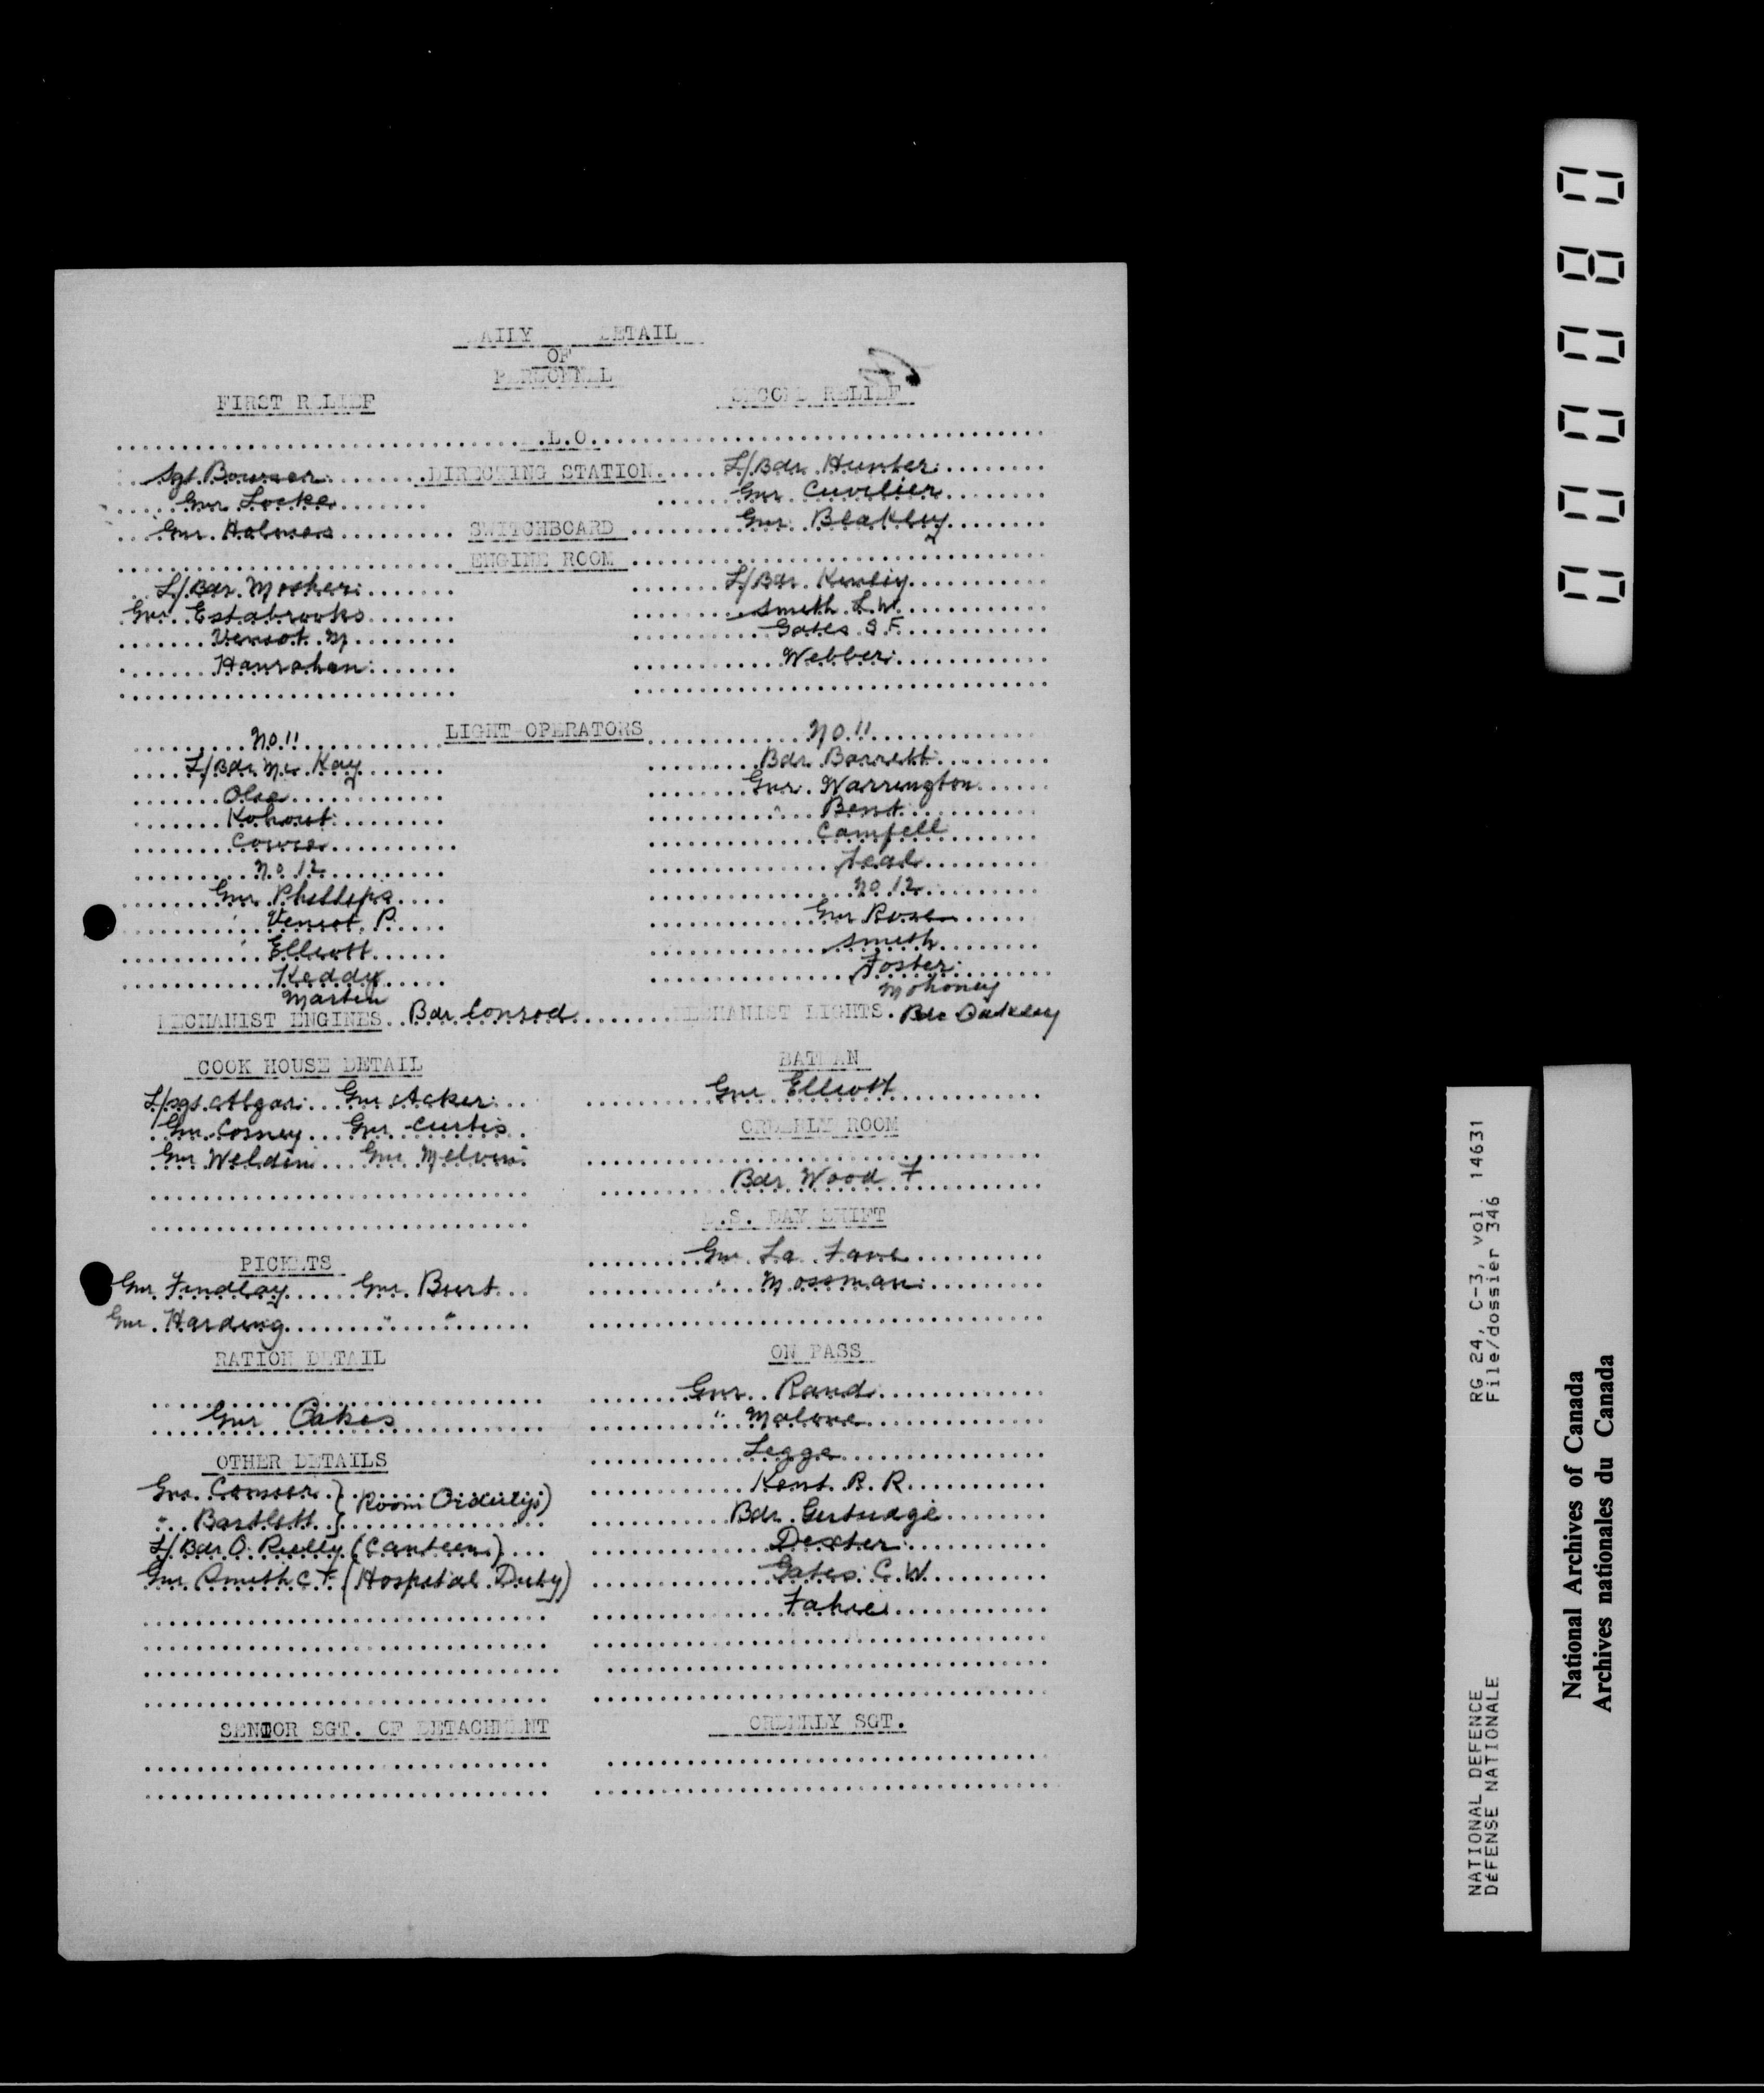 DAILY DETAIL
OF
PERSONNEL
FIRST RELIEF SECOND RELIEF
.L.O.
Sgt. Bowser DIRECTING STATION L/Bdr. Hunter
Gnr Locke Gnr. Cuvilier
Gnr. Holmes SWITCHBOARD Gnr. Blakley
ENGINE ROOM
L/Bdr. Mosher L/Bdr.
Gnr. Estabrooks Smith L.W.
Veniot. M Gates S.F.
Hanrahan Webber
No. 11 LIGHT OPERATORS No. 11
L/Bdr. Mc Kay Bdr. Barrett
Gnr. Warrington
Kohout " Bent
Cowie Campell
No 12 Teal
Gnr Phillips No 12
" Veniot. P. Gnr Rose
" Elliott Smith
Keddy Foster
Martin Mohoney
MECHANIST ENGINES. Bdr. Conrod MECHANIST LIGHTS. Bdr Oakley
COOK HOUSE DETAIL BATMAN
L/sgt. Algar Gnr Acker Gnr Elliott
Gnr. Corney Gnr Curtis ORDERLY ROOM
Gnr Weldin Gnr Melvin
Bdr Wood F
.S. DAY SHIFT
PICKETS Gnr La Fave
Gnr. Findlay Gnr. Burt " Mossman
Gnr. Harding " "
RATION DETAIL ON PASS
Gnr. Rand
Gnr Oakes " Malone
Legge
OTHER DETAILS Kent. R. R.
Gnr. } (Room Orderlys)
" Bartlett } Bdr. Gertridge
L/Bdr O. Rielly (Canteen) Dexter
Gnr. Smith C F. (Hospital Duty) Gates C. W.
Fahie
SENIOR SGT. OF DETACHMENT ORDERLY SGT.
000080
RG 24, C-3, vol. 14631
File/dossier 346
NATIONAL DEFENCE
DÉFENSE NATIONALE
National Archives of Canada
Archives nationales du Canada